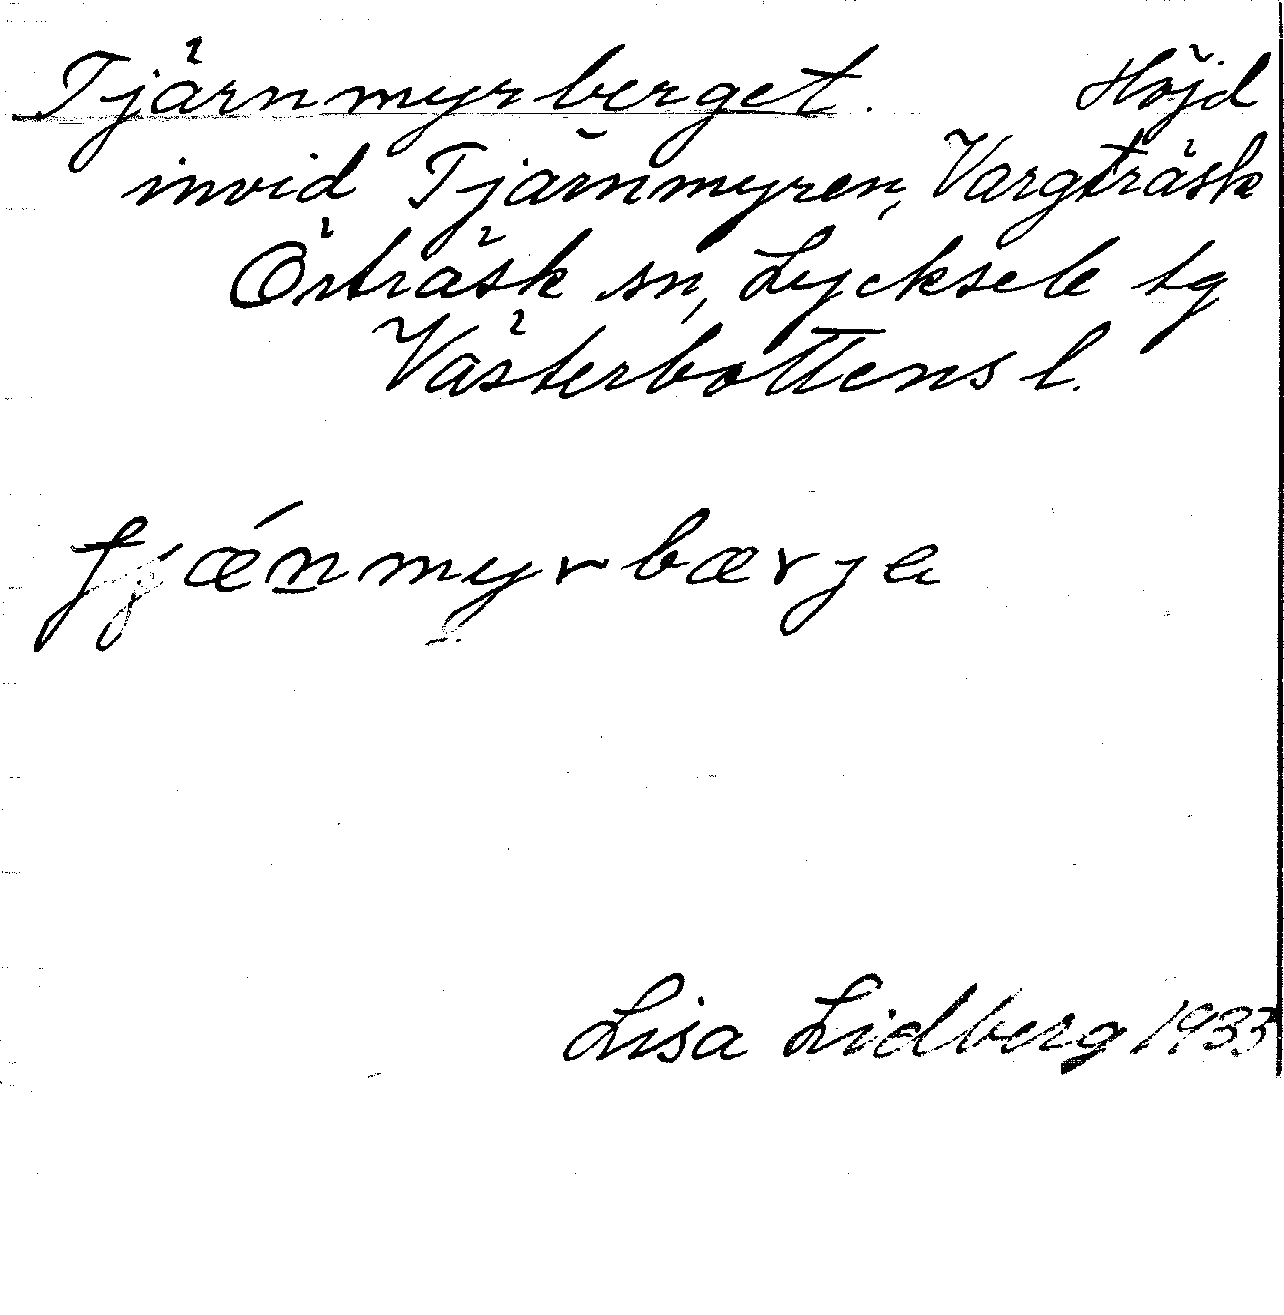 Tjärnmyrberget. Höjd
invid Tjärnmyren, Vargträsk
Örträsk sn, Lycksele tg
Västerbottens l.
tjǽnmyrbærjə
Lisa Lidberg 1933